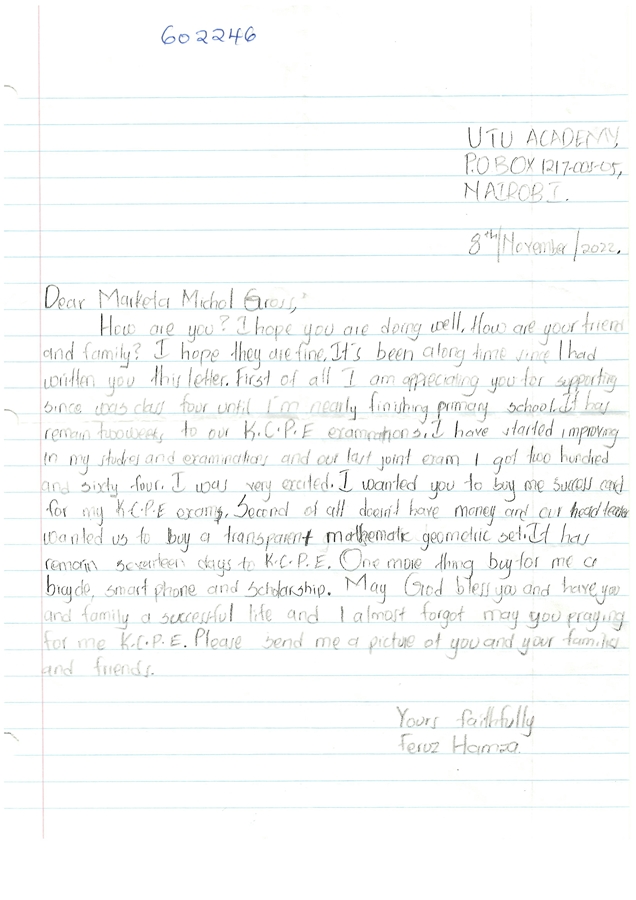 602246
UTU ACADEMY,
P.O BOX 1217-00505,
NAIROBI.
8th/November/2022.
Dear Marketa Michol Gross,
How are you? I hope you are doing well. How are your friend
and family? I hope they are fine. It's been along time since I had
written you this letter. First of all I am appreciating you for supporting
since was class four until I'm nearly finishing primary school. It has
remain two weeks to our K.C.P.E examinations. I have started improving
in my studies and examinations and our last joint exam I got two hundred
and sixty four. I was very excited. I wanted you to buy me success card
for my K.C.P.E exams. Second of all doesn't have money and our head teacher
wanted us to buy a transparent mathematic geometric set. It has
remain seventeen days to K.C.P.E. One more thing buy for me a
bicycle, smart phone and scholarship. May God bless you and have you
and family a successful life and I almost forgot may you praying
for me K.C.P.E. Please send me a picture of you and your families
and friends.
Yours faithfully
Feruz Hamza.